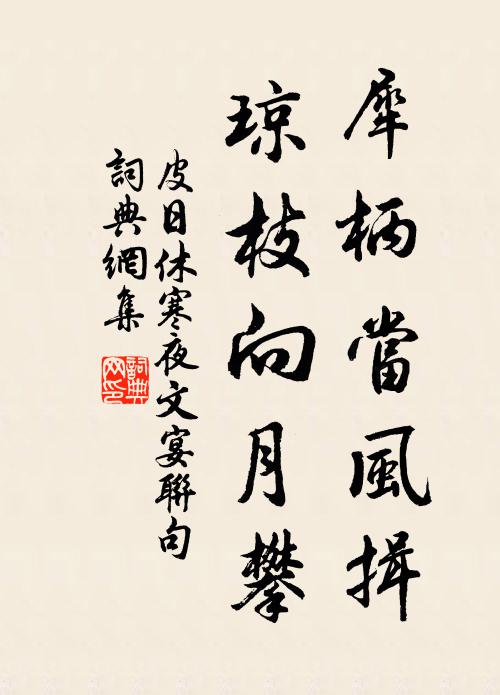 犀柄當風揖
琼枝向月攀
皮日休寒夜文宴聯句
詞典網集
詞典网印